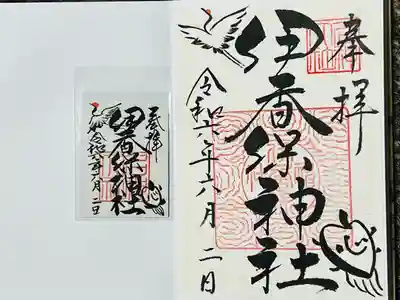 奉拝
伊香保神社
令和六年六月二日
奉拝
伊香保神社
令和六年六月二日